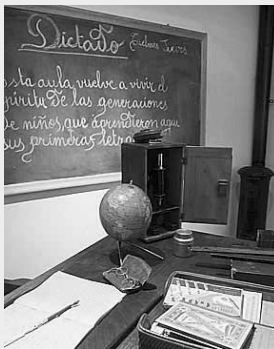 Dictado
esta aula, vuelve a vivir el
espíritu De las generaciones
De niños, que aprendieron aquí
sus primeras letras